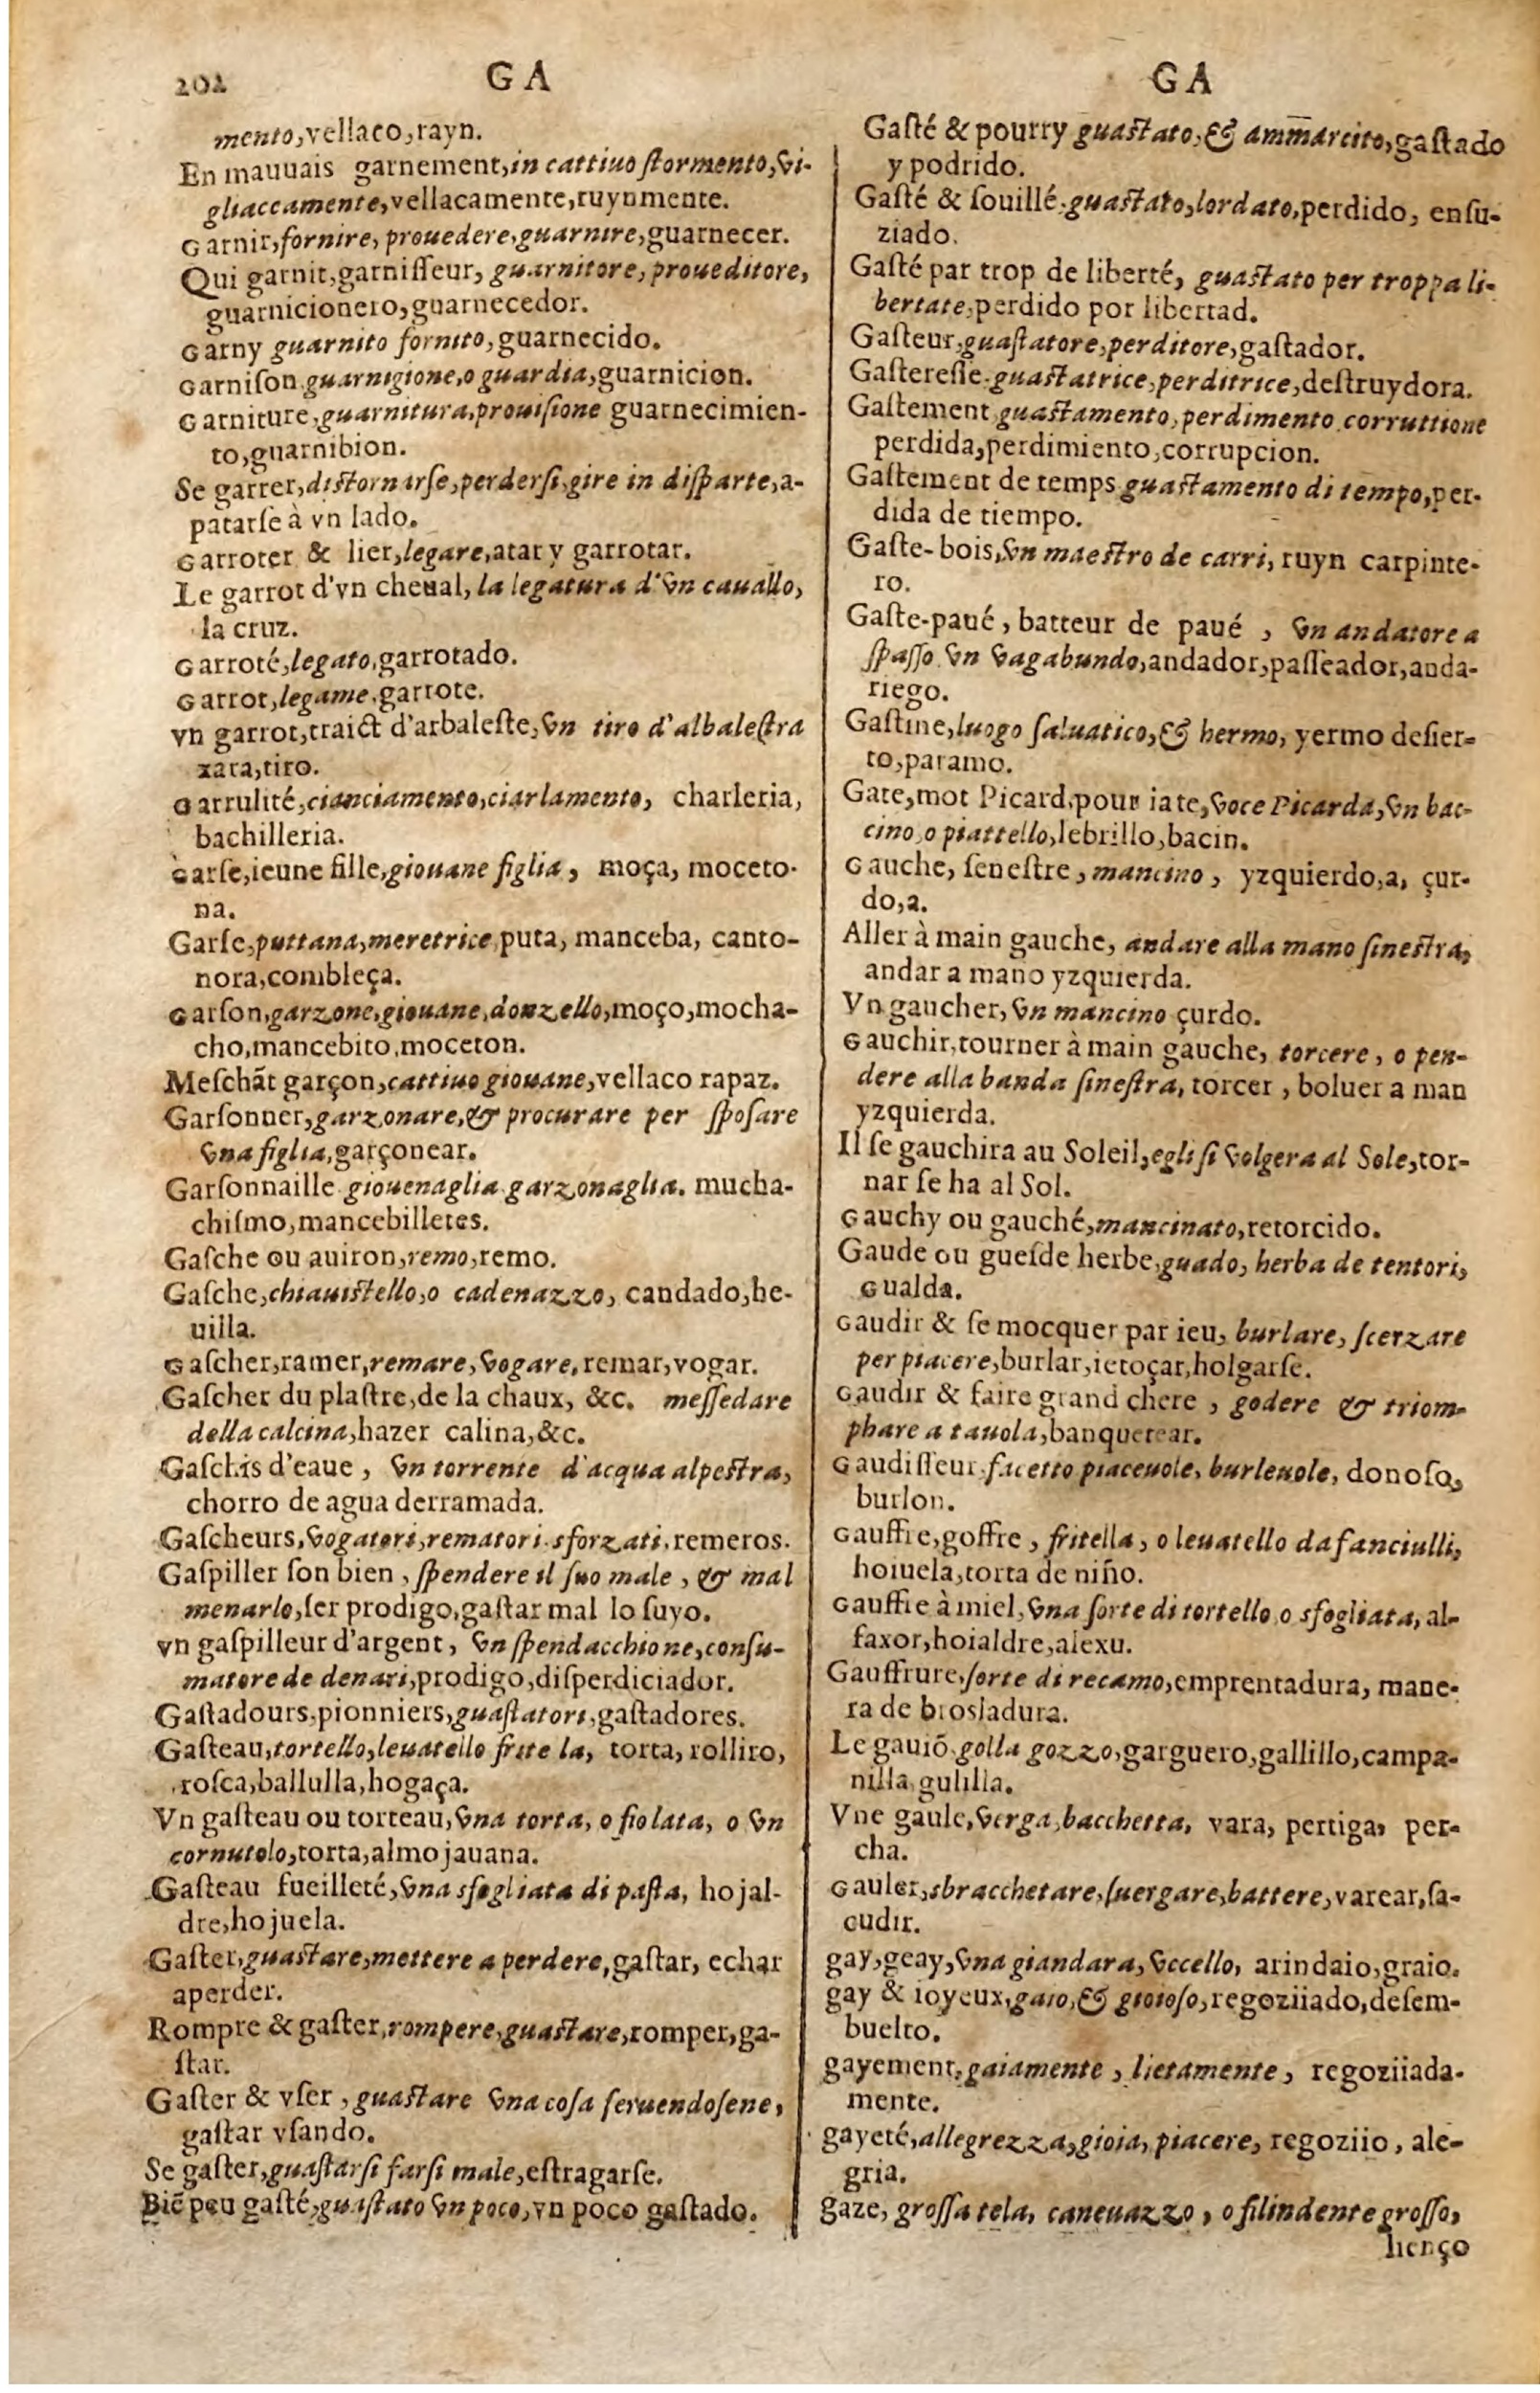 202 GA
mento,vellaco,rayn.
En mauuais garnement,in cattiuo ſtormento,vi-
gliaccamente,vellacamente,ruynmente.
Garnir,fornire, prouedere,guarnire,guarnecer.
Qui garnit,garniſſeur, guarnitore, proueditore,
guarnicionero,guarnecedor.
Garny guarnito fornito,guarnecido.
Garniſon guarnigione,o guardia,guarnicion.
Garniture,guarnitura,prouiſione guarnecimien-
to,guarnibion.
Se garrer,diſtornarſe,perderſi,gire in diſparte,a-
patarſe à vn lado.
Garroter & lier,legare,atar y garrotar.
Le garrot d'vn cheual, la legatura d'vn cauallo,
la cruz.
Garroté,legato,garrotado.
Garrot,legame,garrote.
vn garrot,traict d'arbaleſte,vn tiro d'albaleſtra
xara,tiro.
Garrulité,cianciamento,ciarlamento, charleria,
bachilleria.
Garſe,ieune fille,giouane figlia, moça, moceto-
na.
Garſe,puttana,meretrice puta, manceba, canto-
nora,combleça.
Garſon,garzone,giouane,donzello,moço,mocha-
cho,mancebito,moceton.
Meſchãt garçon,cattiuo giouane,vellaco rapaz.
Garſonner,garzonare,& procurare per ſpoſare
vna figlia,garçonear.
Garſonnaille giouenaglia garzonaglia. mucha-
chiſmo,mancebilletes.
Gaſche ou auiron,remo,remo.
Gaſche,chiauiſtello,o cadenazzo, candado,he-
uilla.
Gaſcher,ramer,remare,vogare,remar,vogar.
Gaſcher du plaſtre,de la chaux, &c. meſſedare
della calcina,hazer calina,&c.
Gaſchis d'eaue, vn torrente d'acqua alpeſtra,
chorro de agua derramada.
Gaſcheurs,vogatori,rematori sforzati,remeros.
Gaſpiller ſon bien, ſpendere il ſuo male, & mal
menarlo,ſer prodigo,gaſtar mal lo ſuyo.
vn gaſpilleur d'argent, vn ſpendacchione,conſu-
matore de denari,prodigo,diſperdiciador.
Gaſtadours,pionniers,guaſtatori,gaſtadores.
Gaſteau,tortello,leuatello frite la, torta,rolliro,
roſca,ballulla,hogaça.
Vn gaſteau ou torteau,vna torta, o fiolata, o vn
cornutolo,torta,almojauana.
Gaſteau fueilleté,vna sfogliata di paſta, hojal-
dre,hojuela.
Gaſter,guaſtare,mettere a perdere,gaſtar, echar
aperder.
Rompre & gaſter,rompere,guaſtare,romper,ga-
ſtar.
Gaſter & vſer, guaſtare vna coſa ſeruendoſene,
gaſtar vſando.
Se gaſter,guaſtarſi farſi male,eſtragarſe.
Biẽ peu gaſté,guaſtato vn poco,vn poco gaſtado.
GA
Gaſté & pourry guaſtato,& ammarcito,gaſtado
y podrido.
Gaſté & ſouillé,guaſtato,lordato,perdido, enſu-
ziado.
Gaſté par trop de liberté, guaſtato per troppa li-
bertate,perdido por libertad.
Gaſteur,guaſtatore,perditore,gaſtador.
Gaſtereſſe,guaſtatrice,perditrice,deſtruydora.
Gaſtement guaſtamento,perdimento corruttione
perdida,perdimiento,corrupcion.
Gaſtement de temps guaſtamento di tempo,per-
dida de tiempo.
Gaſte-bois,vn maeſtro de carri, ruyn carpinte-
ro.
Gaſte-paué, batteur de paué, vn andatore a
ſpaſſo vn vagabundo,andador,paſſeador,anda-
riego.
Gaſtine,luogo ſaluatico,& hermo, yermo deſier-
to,paramo.
Gate,mot Picard,pour iate,voce Picarda,vn bac-
cino,o piattello,lebrillo,bacin.
Gauche, ſeneſtre, mancino, yzquierdo,a, çur-
do,a.
Aller à main gauche, andare alla mano ſineſtra,
andar a mano yzquierda.
Vn gaucher,vn mancino çurdo.
Gauchir,tourner à main gauche, torcere, o pen-
dere alla banda ſineſtra, torcer, boluer a man
yzquierda.
Il ſe gauchira au Soleil,egli ſi volgera al Sole,tor-
nar ſe ha al Sol.
Gauchy ou gauché,mancinato,retorcido.
Gaude ou gueſde herbe,guado, herba de tentori,
Gualda.
Gaudir & ſe mocquer par ieu, burlare, ſcerzare
per piacere,burlar,ietoçar,holgarſe.
Gaudir & faire grand chere, godere & triom-
phare a tauola,banquetear.
Gaudiſſeur facetto piaceuole, burleuole, donoſo,
burlon.
Gauffre,goffre, fritella, o leuatello da fanciulli,
hoiuela,torta de niño.
Gauffre à miel,vna ſorte di tortello o sfogliata, al-
faxor,hoialdre,alexu.
Gauffrure,ſorte di recamo,emprentadura, mane-
ra de broſladura.
Le gauiõ golla gozzo,garguero,gallillo,campa-
nilla gulilla.
Vne gaule,verga,bacchetta, vara, pertiga, per-
cha.
Gauler,sbracchetare,ſuergare,battere,varear,ſa-
cudir.
gay,geay,vna giandara,vccello, arindaio,graio.
gay & ioyeux,gaio,& gioioſo,regoziiado,deſem-
buelto.
gayement,gaiamente, lietamente, regoziiada-
mente.
gayeté,allegrezza,gioia, piacere, regoziio, ale-
gria.
gaze, groſſa tela, caneuazzo, o filindente groſſo,
lienço